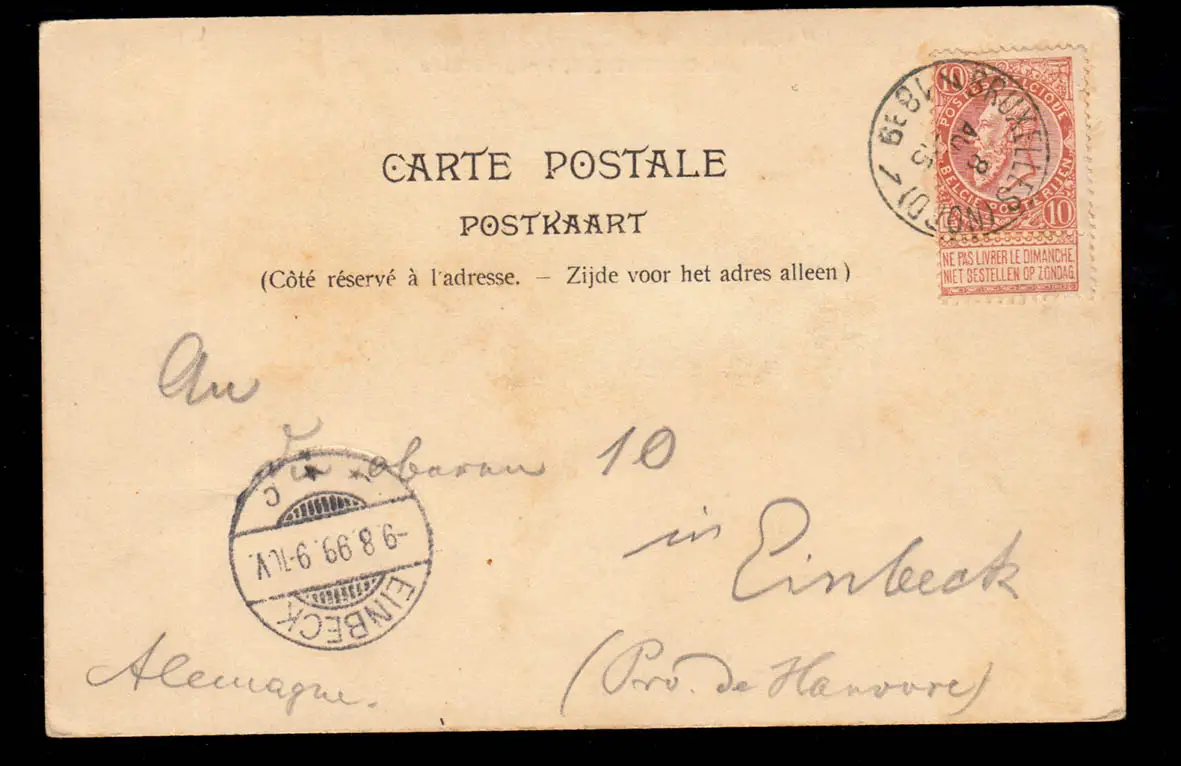 CARTE POSTALE
POSTKAART
(Côté réservé à l'adresse. — Zijde voor het adres alleen)
10
POSTES BELGIQUE
BELGIE POSTERIJEN
10
NE PAS LIVRER LE DIMANCHE
NIET BESTELLEN OP ZONDAG
BRUXELLES (NORD) 1
8 AO
18 99
An
oberen 10
in Einbeck
(Prov. de Hanovre)
Alemagne.
EINBECK
-9.8.99.9-10V.
* * c